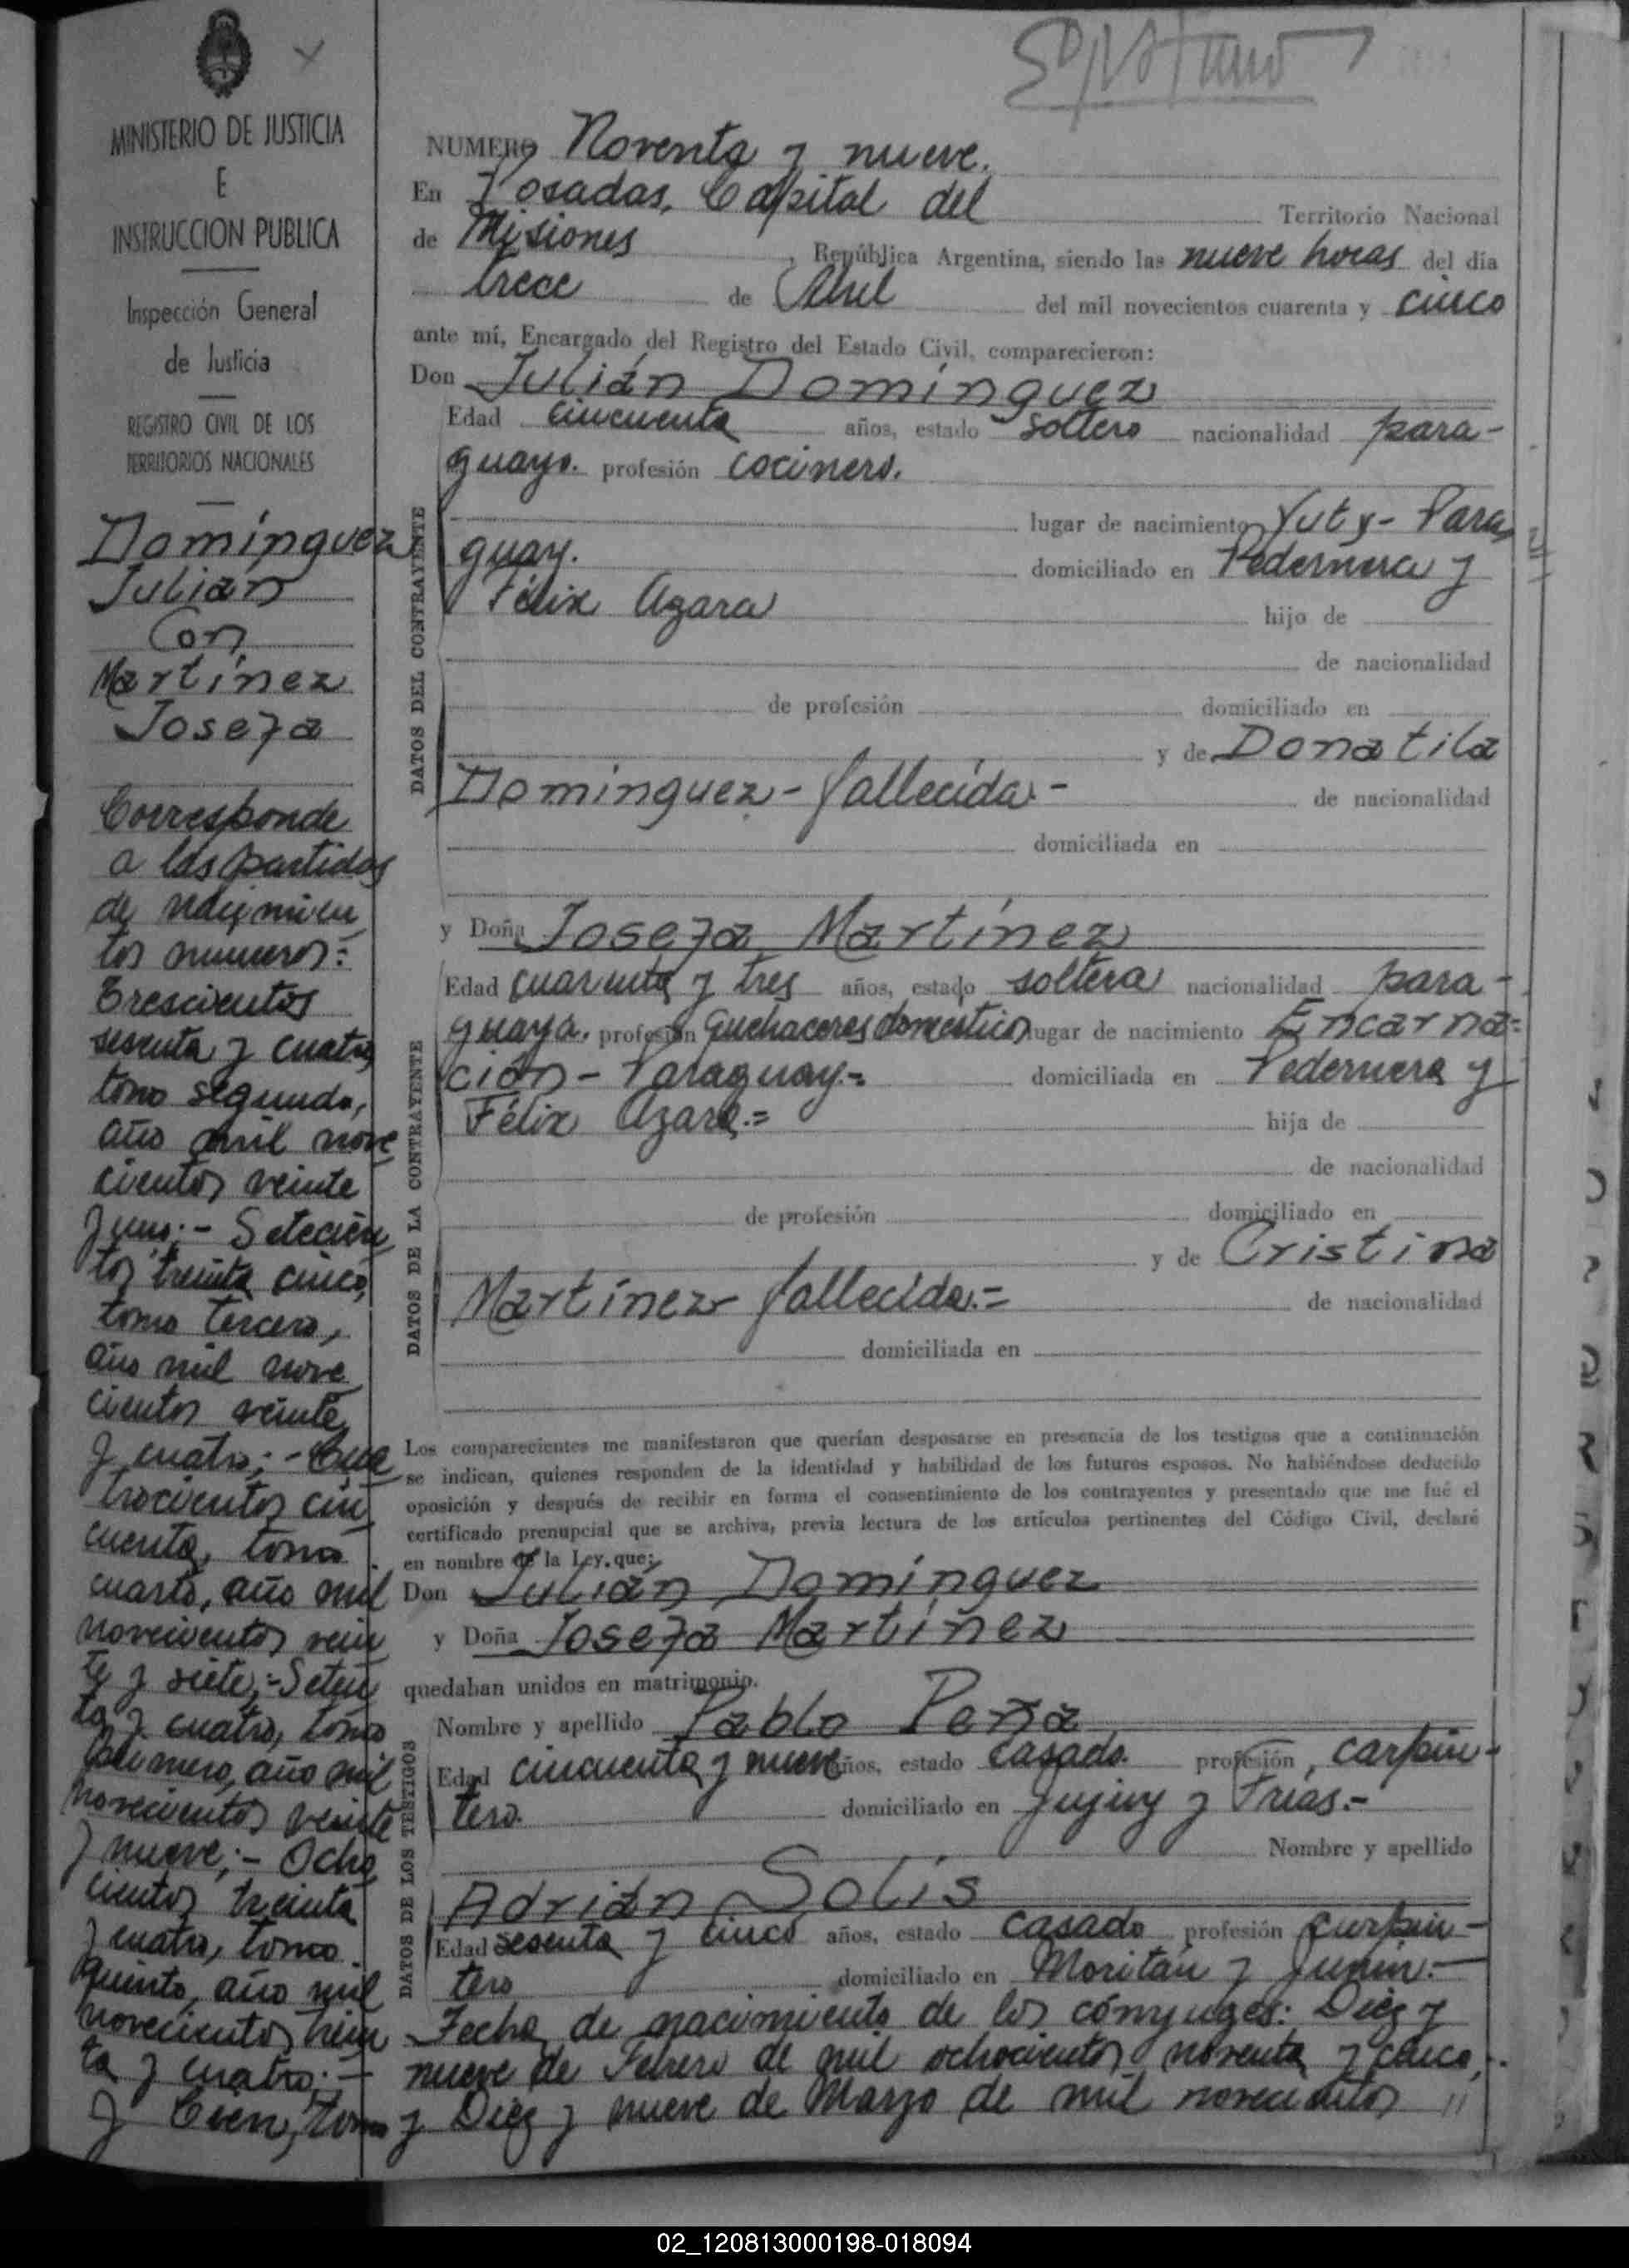 MINISTERIO DE JUSTICIA
E
INSTRUCCION PUBLICA
Inspección General
de Justicia
REGISTRO CIVIL DE LOS
TERRITORIOS NACIONALES
Domínguez
Julián
Con
Martínez
Josefa
Corresponde
a las partidas
de nacimien
tos numeros:
Trescientos
sesenta y cuatro,
tomo segundo,
año mil nove
cientos veinte
y uno;- Setecien
tos treinta cinco,
tomo tercero,
año mil nove
cientos veinte
y cuatro;- Cua
trocientos cin
cuenta, tomo
cuarto, año mil
novecientos vein
te y siete;- Seten
ta y cuatro, tomo
primero, año mil
novecientos veinte
y nueve;- Ocho
cientos treinta
y cuatro, tomo
quinto, año mil
novecientos trein
ta y cuatro;-
y Cien, tomo
NUMERO Noventa y nueve.
En Posadas, Capital del Territorio Nacional
de Misiones, República Argentina, siendo las nueve horas del día
trece de Abril del mil novecientos cuarenta y cinco
ante mí, Encargado del Registro del Estado Civil, comparecieron:
Don Julián Domínguez
DATOS DEL CONTRAYENTE
Edad cincuenta años, estado soltero nacionalidad para-
guayo. profesión cocinero.
lugar de nacimiento Yuty- Para
guay. domiciliado en Pedernera y
Félix Azara hijo de
de nacionalidad
de profesión domiciliado en
y de Donatila
Dominguez- fallecida.- de nacionalidad
domiciliada en
y Doña Josefa Martínez
DATOS DE LA CONTRAYENTE
Edad cuarenta y tres años, estado soltera nacionalidad para-
guaya. profesión quehaceres domestico lugar de nacimiento Encarna=
ción- Paraguay.= domiciliada en Pedernera y
Félix Azara.= hija de
de nacionalidad
de profesión domiciliado en
y de Cristina
Martínez fallecida.= de nacionalidad
domiciliada en
Los comparecientes me manifestaron que querían desposarse en presencia de los testigos que a continuación
se indican, quienes responden de la identidad y habilidad de los futuros esposos. No habiéndose deducido
oposición y después de recibir en forma el consentimiento de los contrayentes y presentado que me fué el
certificado prenupcial que se archiva, previa lectura de los artículos pertinentes del Código Civil, declaré
en nombre de la Ley, que:
Don Julián Domínguez
y Doña Josefa Martínez
quedaban unidos en matrimonio.
DATOS DE LOS TESTIGOS
Nombre y apellido Pablo Peña
Edad cincuenta y nueve años, estado casado. profesión carpin-
tero. domiciliado en Jujuy y Frías.-
Nombre y apellido
Adrián Solís
Edad sesenta y cinco años, estado casado profesión carpin-
tero domiciliado en Moritán y Junín.-
Fecha de nacimiento de los cónyuges: Diez y
nueve de Febrero de mil ochocientos noventa y cinco,
y Diez y nueve de Marzo de mil novecientos //
02_120813000198-018094